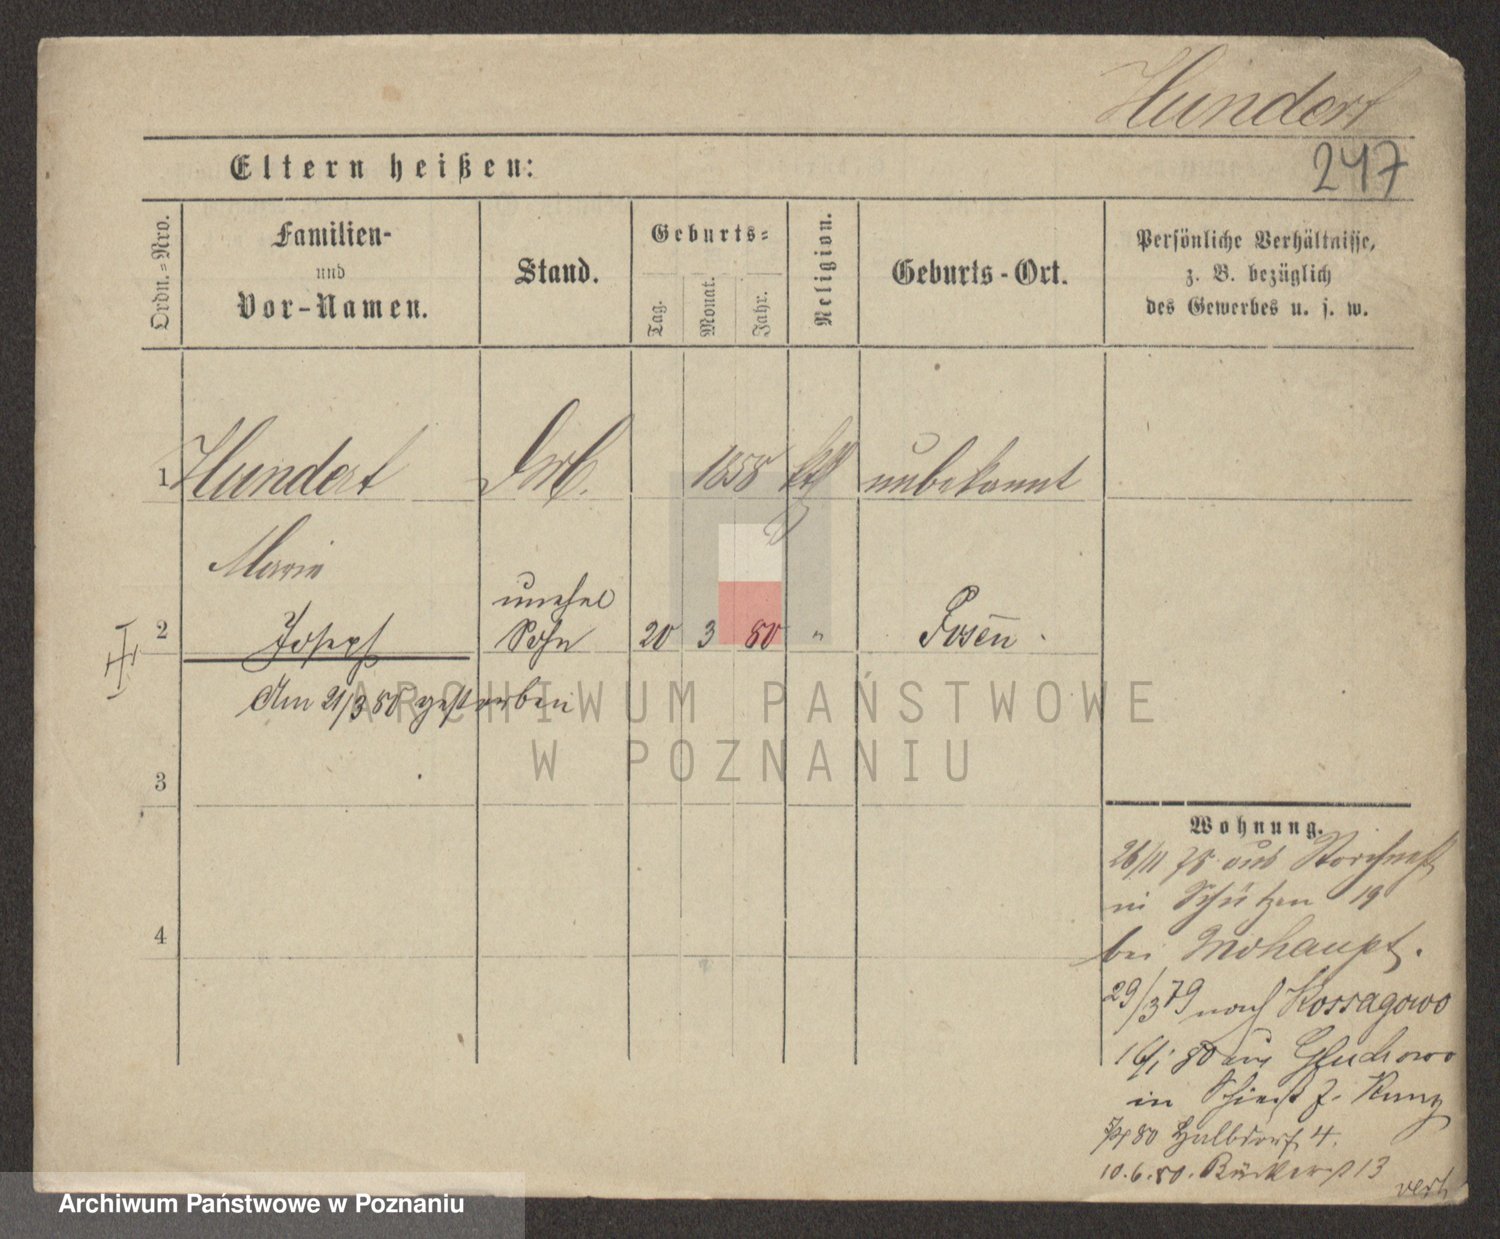 Hundert
247
Eltern heißen:
Ordn.=Nro.
Familien-
und
Vor-Namen.
Stand.
Geburts=
Tag.
Monat.
Jahr.
Religion.
Geburts-Ort.
Persönliche Verhältnisse,
z. B. bezüglich
des Gewerbes u. s. w.
1 Hundert 1858 kth unbekannt
Marie
unehel
2 Joseph Sohn 20 3 80 " Posen.
Am 21/3 80 gestorben
ARCHIWUM PAŃSTWOWE
W POZNANIU
3
4
Wohnung.
26/11 78 aus
in Schützen 19
bei Mohaupt.
29/3 79 nach Kossagowo
80 aus Gluchowo
in
80 Halbdorf 4.
10.6.80. 13
Archiwum Państwowe w Poznaniu